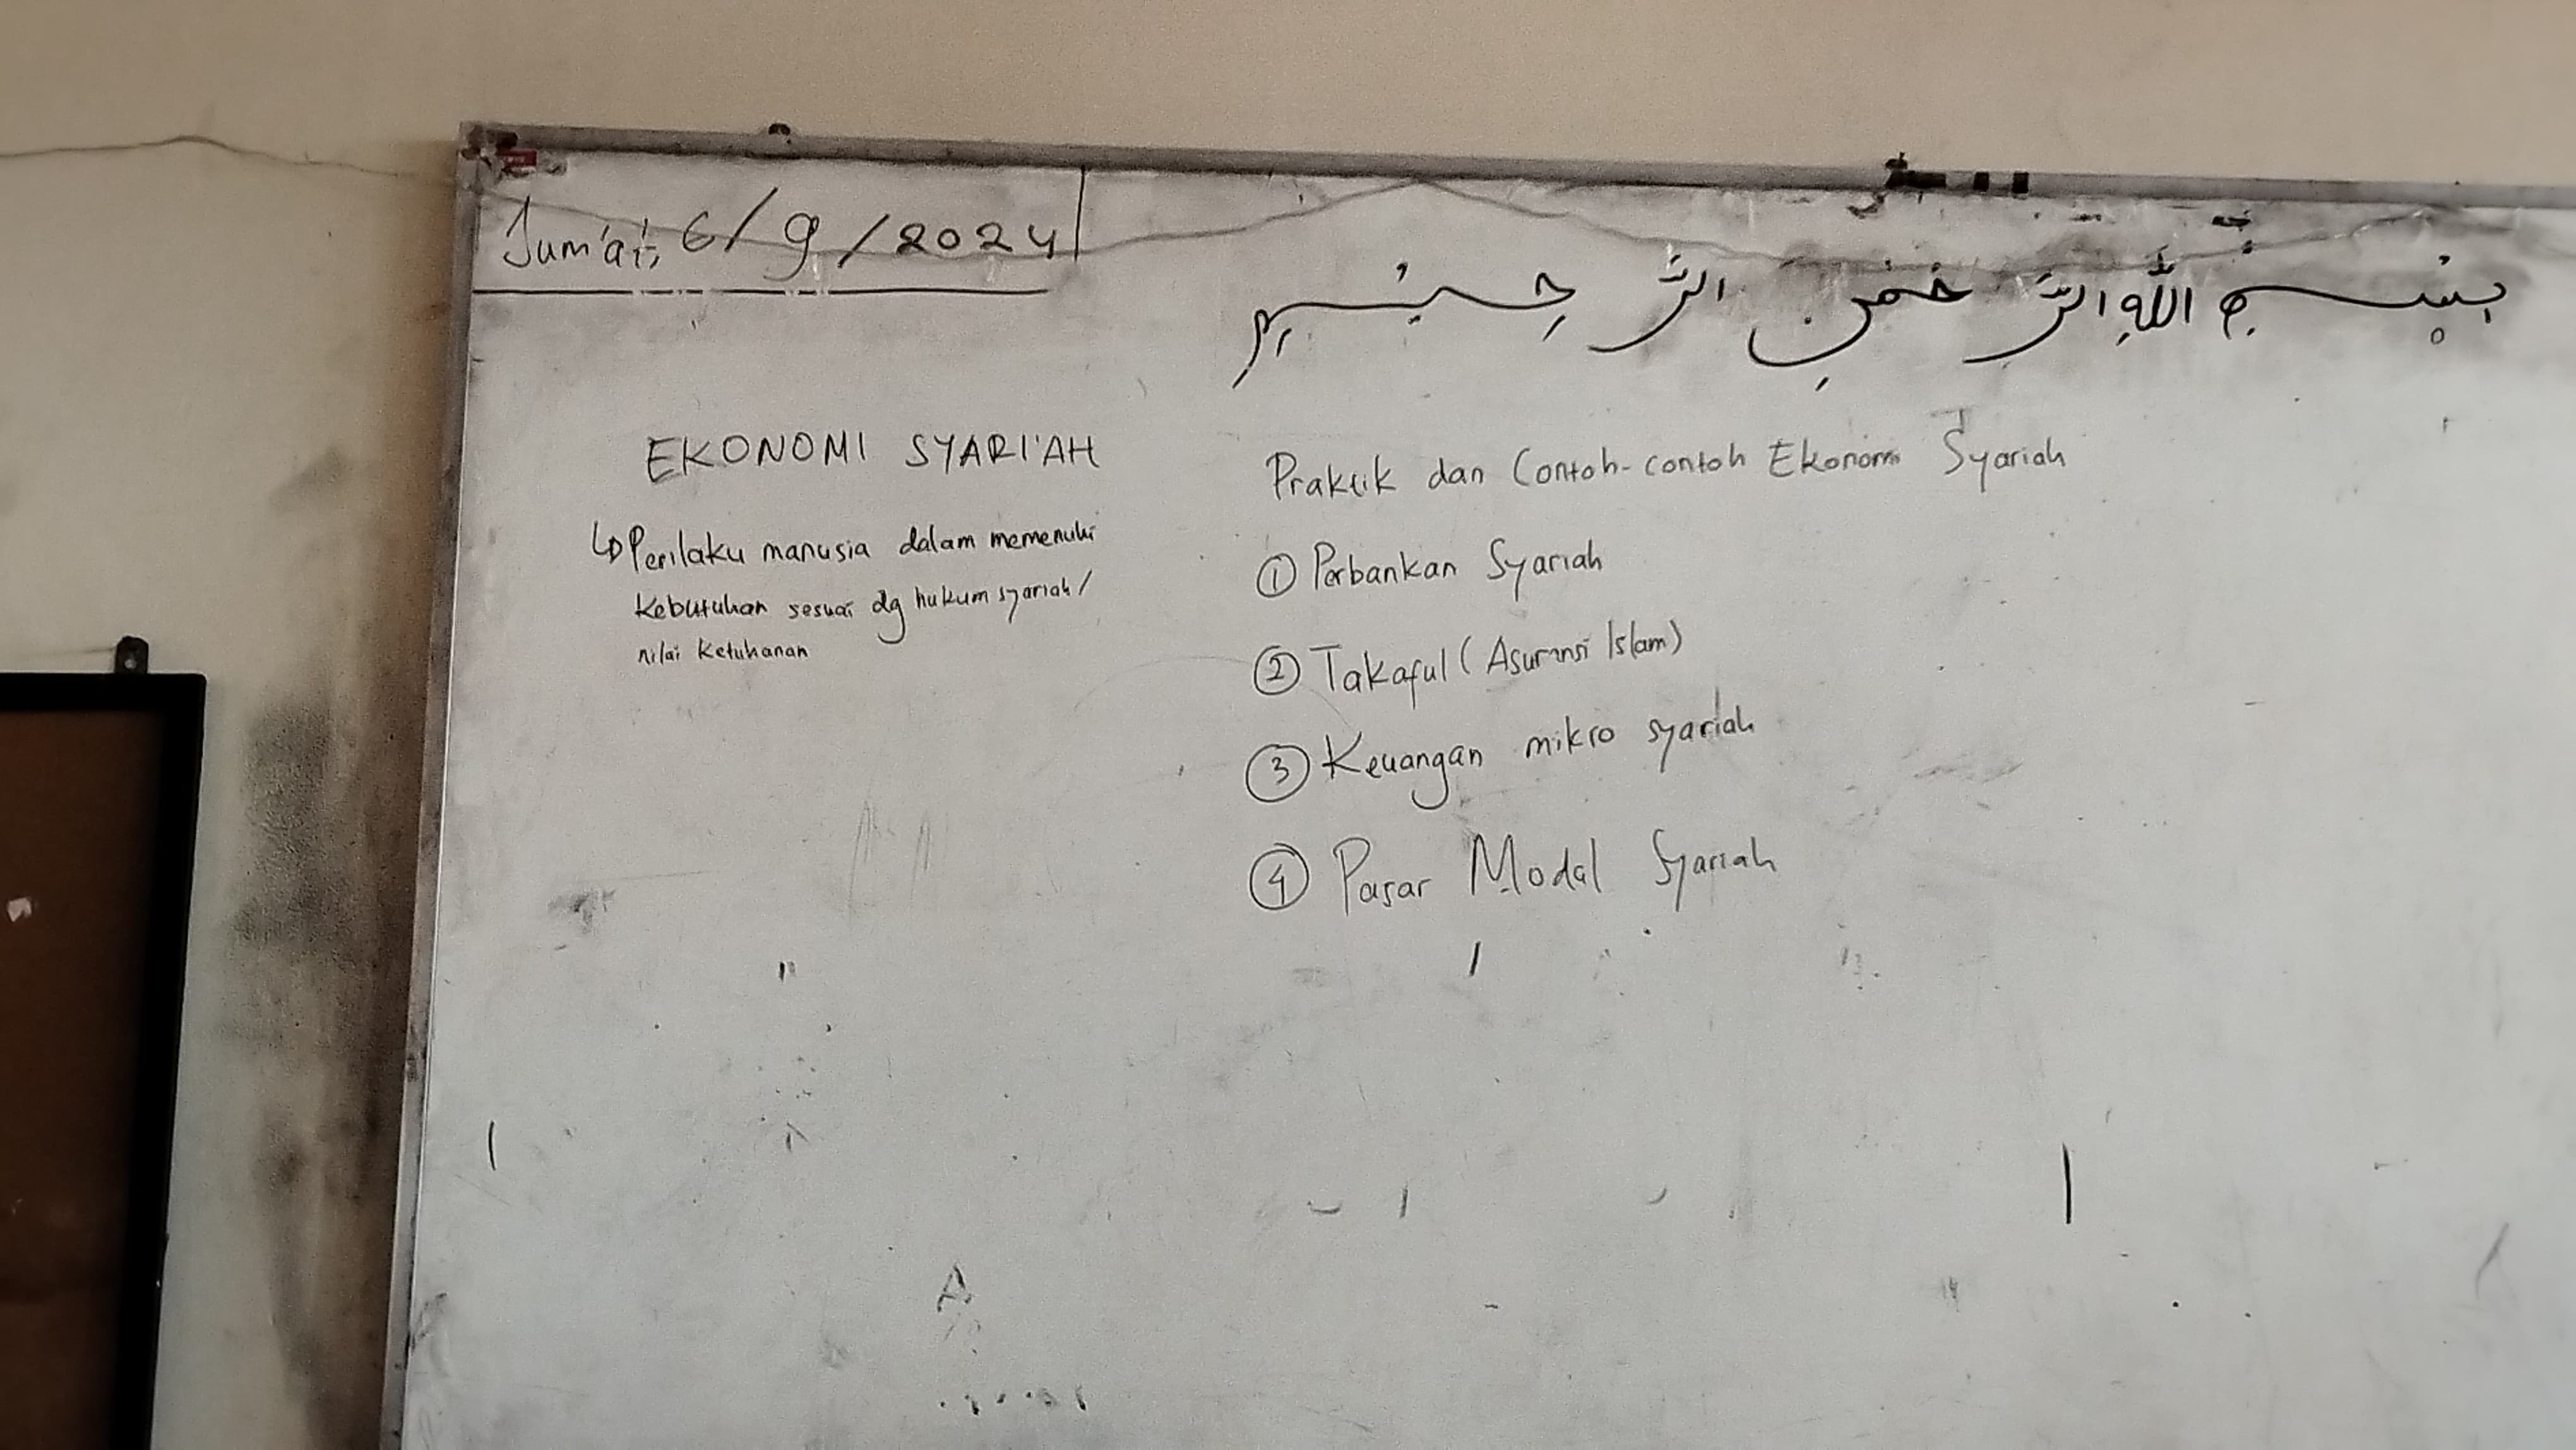 Jum'at, 6/9/2024
بِسْــمِ اللَّهِ الرَّحْمَنِ الرَّحِيْــمِ
EKONOMI SYARI'AH
↳ Perilaku manusia dalam memenuhi
kebutuhan sesuai dg hukum syariah/
nilai ketuhanan
Praktik dan Contoh-contoh Ekonomi Syariah
① Perbankan Syariah
② Takaful (Asuransi Islam)
③ Keuangan mikro syariah
④ Pasar Modal Syariah